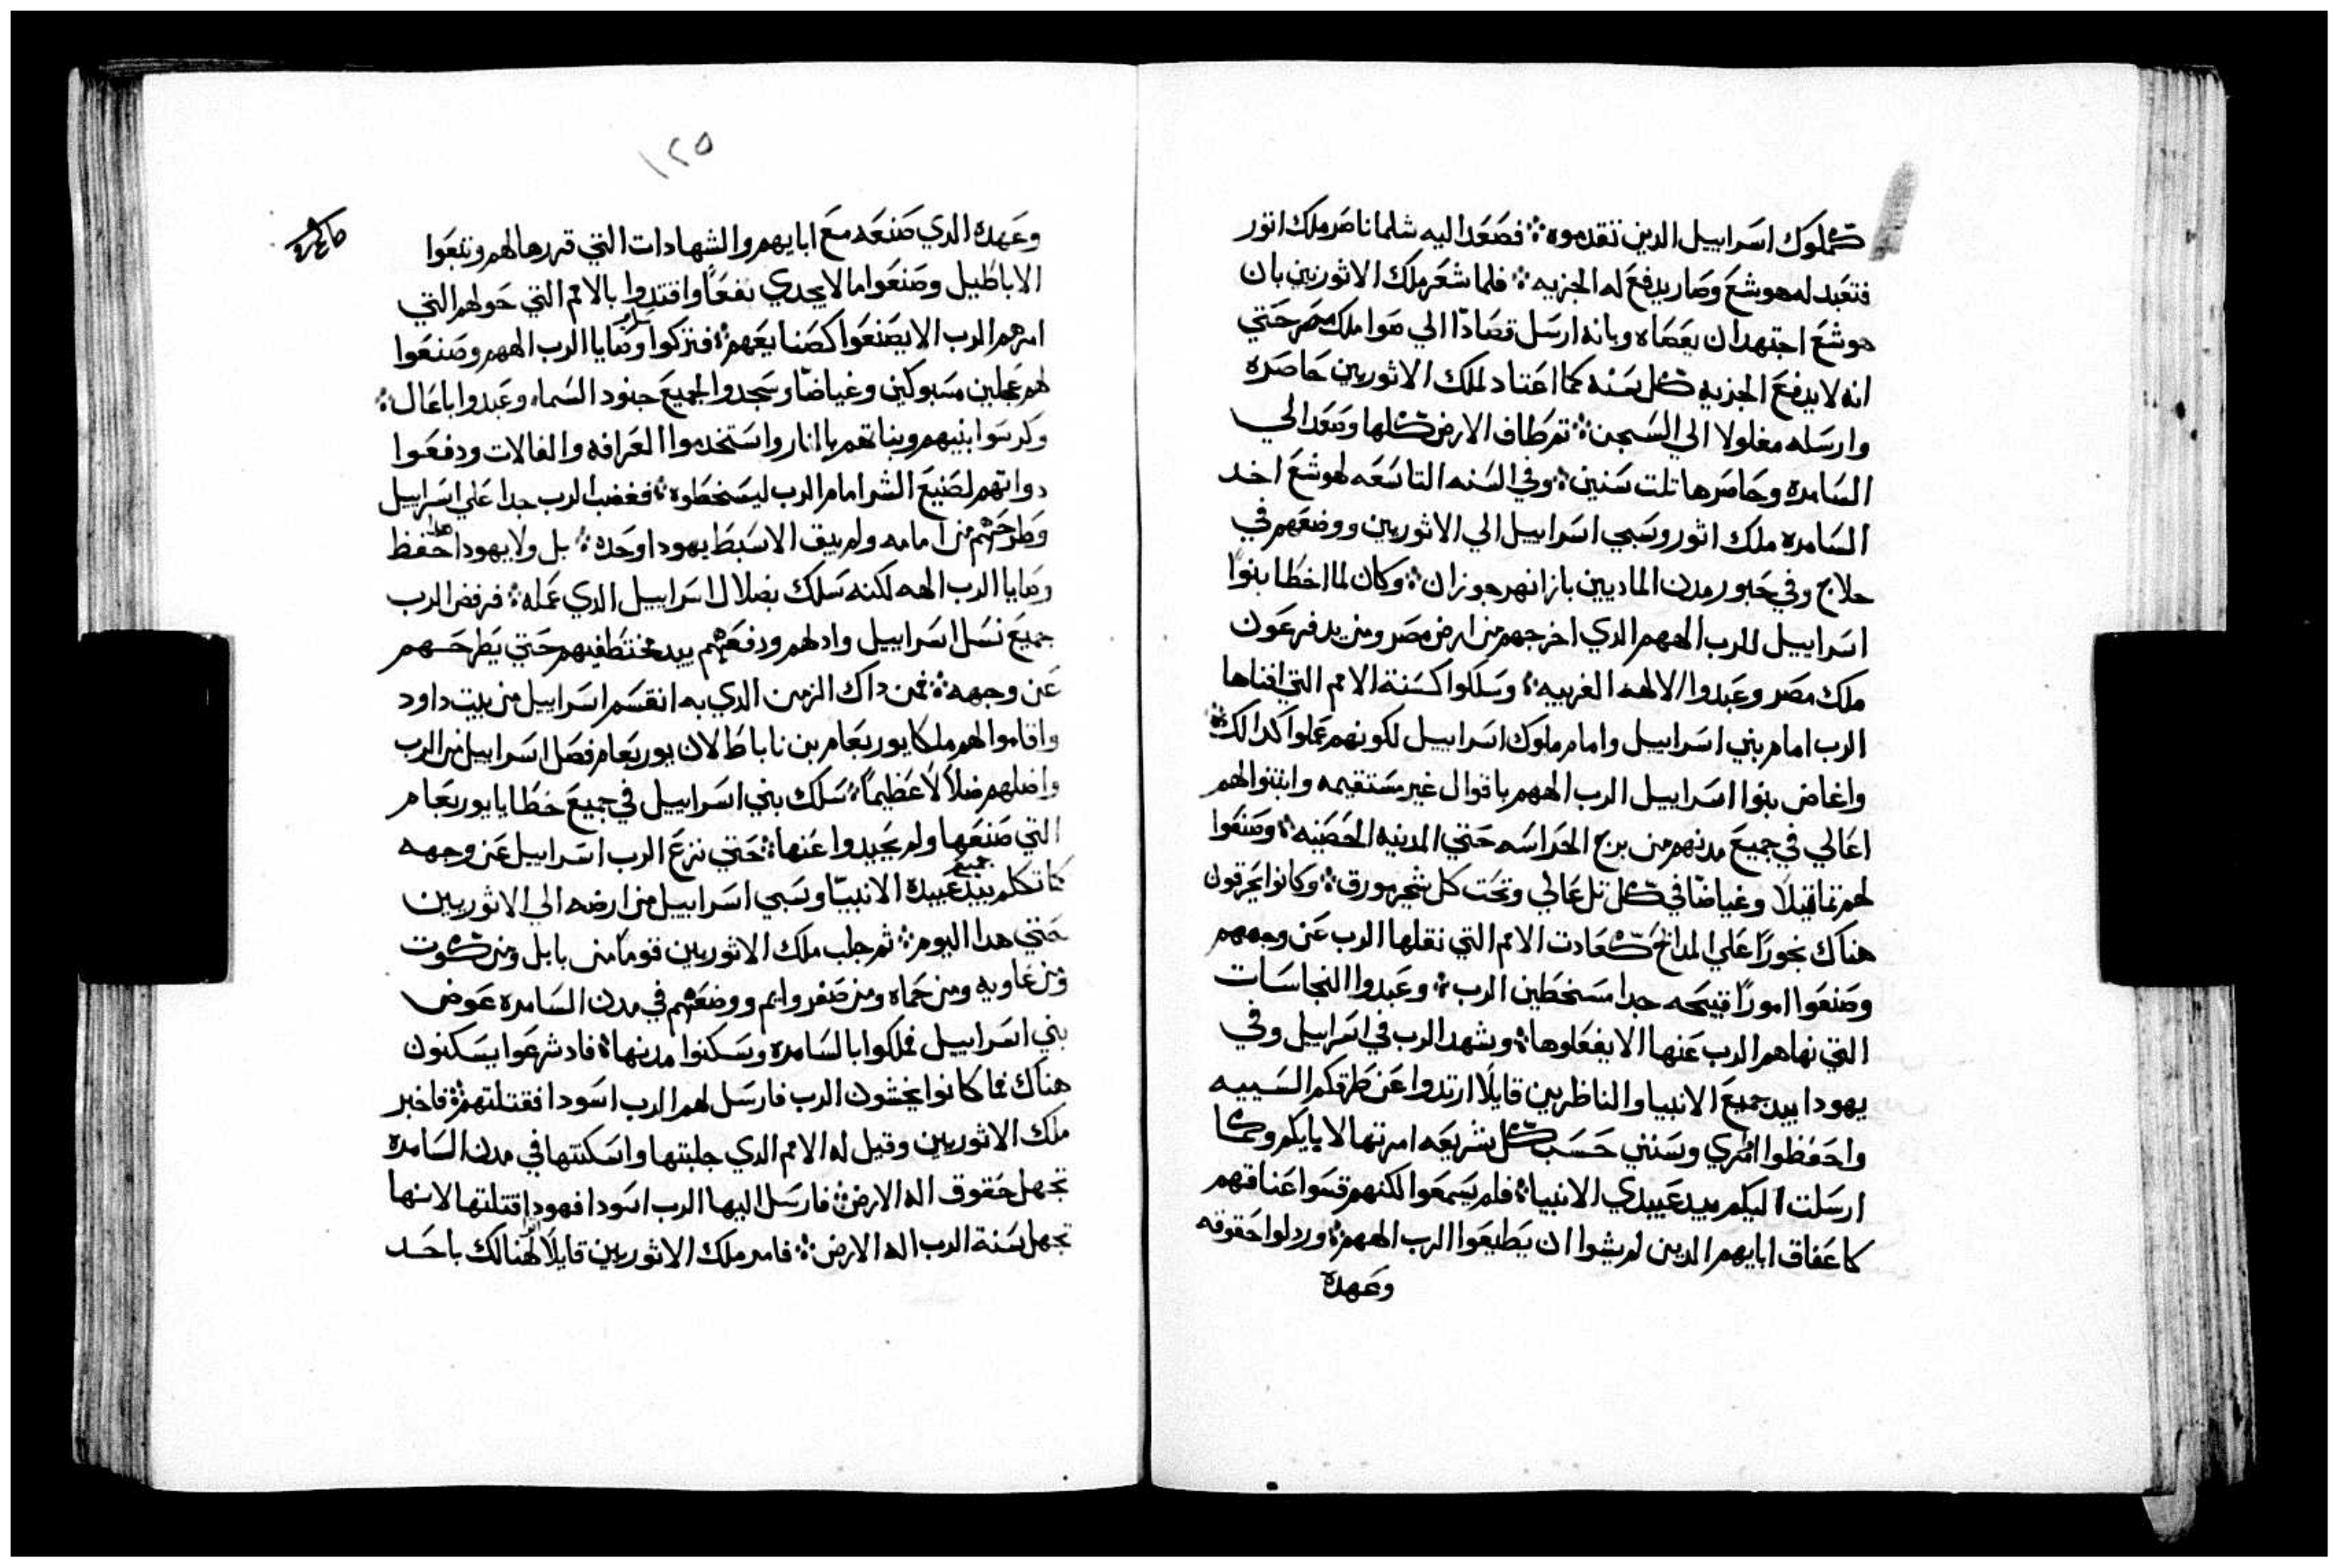 كملوك اسراييل الدين تقدموه؛ فصَعَد اليه شلماناصَر ملك اثور
فتعَبد له هوشعَ وصَار يدفعَ له الجزيه؛ فلما شعَر ملك الاثوريين بان
هوشعَ اجتهد ان يعَصَاه وبانه ارسَل قصَادًا الي صَوا ملك مصَر حَتي
انه لا يدفعَ الجزيه كل سَنه كما اعَتاد لملك الاثوريين حَاصَره
وارسَله مغلولا الي السَجن؛ تم طاف الارض كلها وصَعَد الي
السَامره وحَاصَرها تلت سَنين؛ وفي السَنه التاسَعَه لهوشعَ اخد
السَامره ملك اثور وسَبي اسَراييل الي الاثوريين ووضعَهم في
حلاج وفي حَبور مدن الماديين بازا نهر جوزان؛ وكان لما اخطَا بنوا
اسَراييل للرب الههم الدي اخرجهم من ارض مصَر ومن يد فرعَون
ملك مصَر وعَبدوا الالهه الغريبه؛ وسَلكوا كسَنة الامم التي افناها
الرب امام بني اسَراييل وامام ملوك اسَراييل لكونهم عَملوا كدالك؛
واغاض بنوا اسَراييل الرب الههم باقوال غير مسَتقيمه وابتنوا لهم
اعَالي في جميعَ مدنهم من برج الحَراسَه حَتي المدينه الحَصَنيه؛ وصَنعَوا
لهم تماتيلًا وغياضًا في كل تل عَالي وتحَت كل شجر مورق؛ وكانوا يحَرقون
هناك بخورًا عَلي المدابح كعَادت الامم التي نقلها الرب عَن وجههم
وصَنعَوا امورًا قبيحَه جدا مسَخطَين الرب؛ وعَبدوا النجاسَات
التي نهاهم الرب عَنها الا يفعَلوها؛ وشهد الرب في اسَراييل وفي
يهودا بيد جميعَ الانبيا والناظرين قايلًا ارتدوا عَن طَرقكم السَييه
واحَفظوا امري وسَنني حَسَب كل شريعَه امرتها لابايكم وكما
ارسَلت اليكم بيد عَبيدي الانبيا؛ فلم يسَمعَوا لكنهم قسَوا عَناقهم
كاعَفاق ابايهم الدين لم يشوا ان يطَيعَوا الرب الههم؛ وردلوا حَقوقه
وعَهده
١٢٥
وعَهده الدي صَنعَه معَ ابايهم والشهادات التي قررها لهم وتبعَوا
الاباطَيل وصَنعَوا ما لا يجدي نفعًا واقتدوا بالامم التي حَولهم التي
امرهم الرب الا يصَنعَوا كصَنايعَهم؛ فتركوا ساير وصَايا الرب الههم وصَنعَوا
لهم عَجلين مسَبوكين وغياضًا وسَجدوا لجميعَ جنود السَماء وعَبدوا باعَال؛
وكرسَوا بنيهم وبناتهم بالنار واسَتخدموا العَرافه والفالات ودفعَوا
دواتهم لصَنيعَ الشر امام الرب ليسَخطَوه؛ فغضب الرب جدا عَلي اسَراييل
وطَرحَهم من امامه ولم يبق الا سَبط يهودا وحَده؛ بل ولا يهودا حَفظ
وصَايا الرب الهه لكنه سَلك بضلال اسَراييل الدي عَمله؛ فرفض الرب
جميعَ نسَل اسَراييل وادلهم ودفعَهم بيد مختطَفيهم حَتي يطَرحَهم
عَن وجهه؛ فمن داك الزمن الدي به انقسَم اسَراييل من بيت داود
واقاموا لهم ملكا يوربعَام بن ناباط لان يوربعَام فصَل اسَراييل من الرب
واضلهم ضلالًا عَظيمًا؛ سَلك بني اسَراييل في جميعَ خطَايا يوربعَام
التي صَنعَها ولم يحَيدوا عَنها؛ حَتي نزعَ الرب اسَراييل عَن وجهه
كما تكلم بيد جميع عَبيده الانبيّا وسَبي اسَراييل من ارضه الي الاثوريين
حَتي هدا اليوم؛ ثم جلب ملك الاثوريين قومًا من بابل ومن كوت
ومن عَاويه ومن حَماه ومن صَفروايم ووضعَهم في مدن السَامره عَوض
بني اسَراييل فملكوا بالسَامره وسَكنوا مدنها؛ فاد شرعَوا يسَكنون
هناك فما كانوا يخشون الرب فارسَل لهم الرب اسَودا فقتلتهم؛ فاخبر
ملك الاثوريين وقيل له الامم الدي جلبتها واسَكنتها في مدن السَامره
تجهل حَقوق اله الارض؛ فارسَل اليها الرب اسَودا فهودا قتلتها لانها
تجهل سَنة الرب اله الارض؛ فامر ملك الاثوريين قايلًا لهنالك باحَد